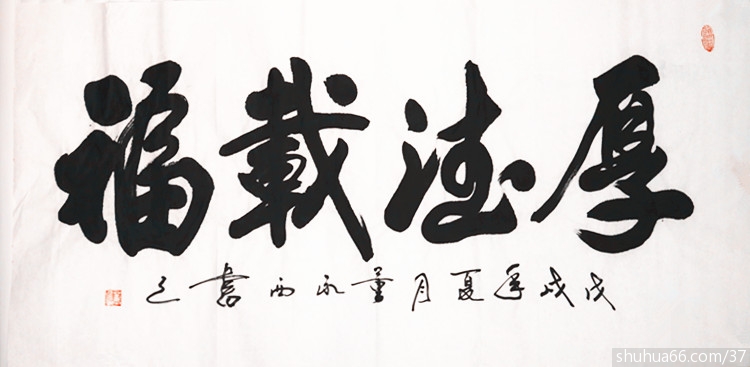 厚德載福
戊戌年夏月董永西書之
shuhua66.com/37